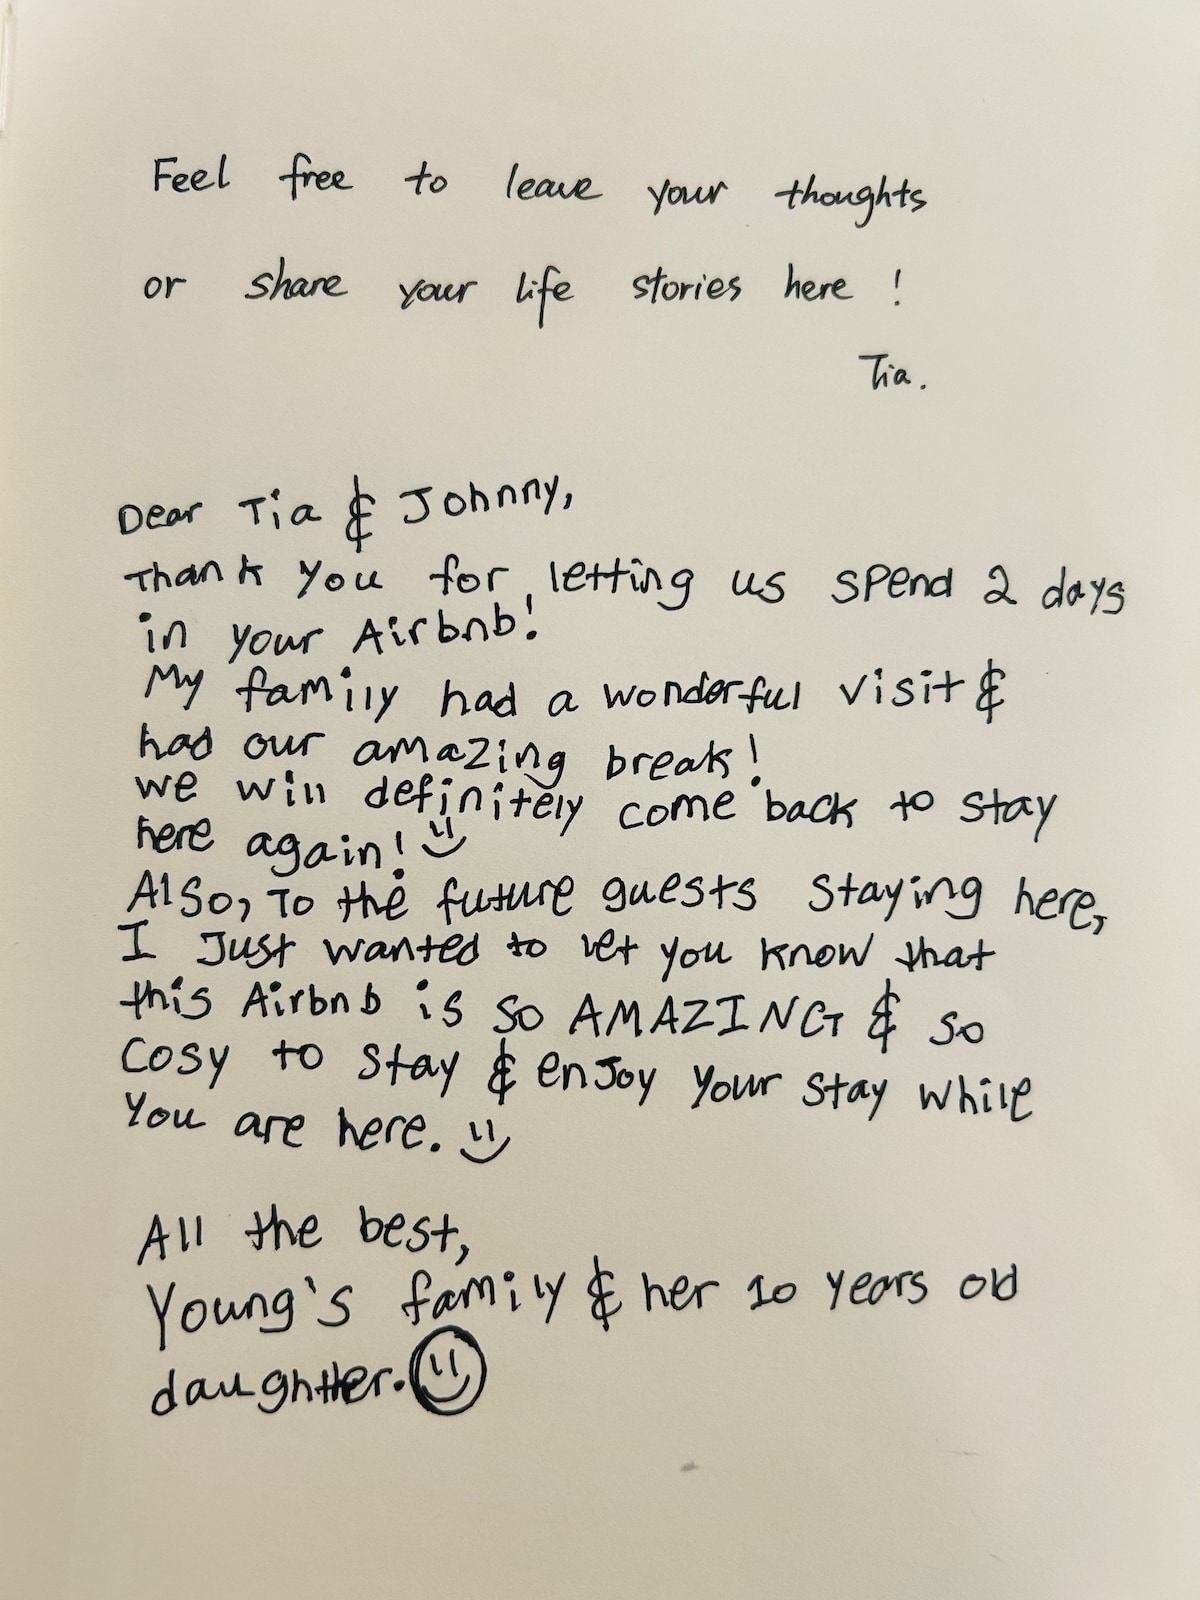 Feel free to leave your thoughts
or share your life stories here !
Tia.
Dear Tia & Johnny,
Thank you for letting us spend 2 days
in your Airbnb!
My family had a wonderful visit &
had our amazing break!
we will definitely come back to stay
here again!
Also, To the future guests staying here,
I Just wanted to let you know that
this Airbnb is so AMAZING & so
cosy to stay & enjoy your stay while
you are here.
All the best,
Young's family & her 10 years old
daughter.